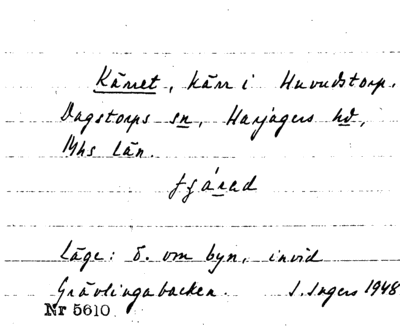 Kärret, kärr i Huvudstorp,
Dagstorps sn, Harjagers hd,
Mhs län.
Läge: ö. om byn, invid
Grävlingabacken. I. Ingers 1948
Nr 5610